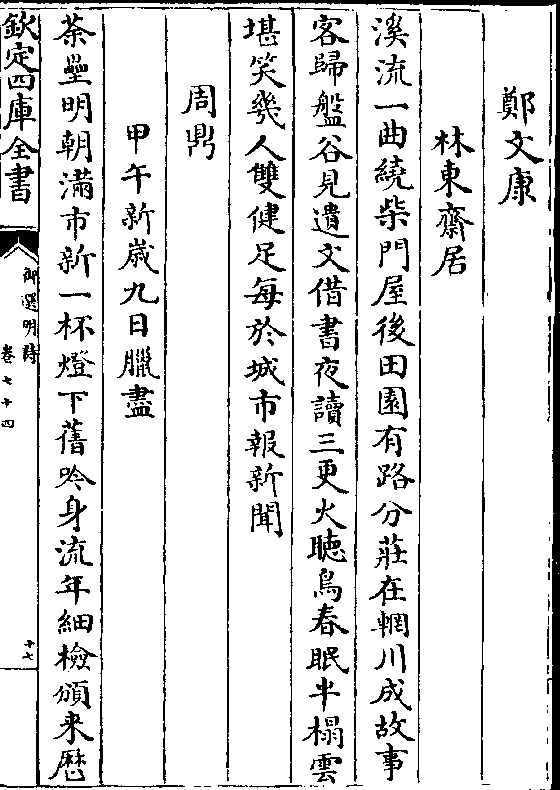 鄭文康
林東齋居
溪流一曲繞柴門屋後田園有路分莊在輞川成故事
客歸盤谷見遺文借書夜讀三更火聽鳥春眠半榻雲
堪笑幾人雙健足每於城市報新聞
周鼎
甲午新歲九日臘盡
荼壘明朝滿市新一杯燈下舊吟身流年細檢頒来厯
欽定四庫全書
御選明詩
卷七十四
十七